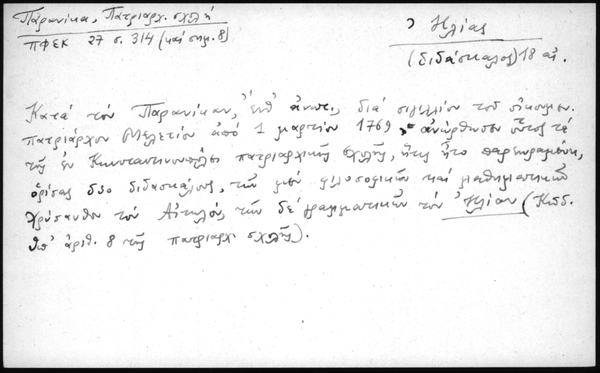 Παρανίκα, Πατριαρχ. σχλή
ΠΦΕΚ 27 σ. 314 (καί σημ. 8)
Ἠλίας
(διδάσκαλος) 18 αἰ.
Κατά τόν Παρανίκαν, ἔνθ' ἀνωτ., διά σιγιλλίου τοῦ οἰκουμεν.
πατριάρχου Μελετίου ἀπό 1 μαρτίου 1769, ἀνώρθωσεν οὗτος τά
τῆς ἐν Κωνσταντινουπόλει πατριαρχικῆς σχλῆς, ἥτις ἦτο παρημελημένη,
ὁρίσας δύο διδασκάλους, τῶν μέν φιλοσοφικῶν καί μαθηματικῶν
Χρύσανθον τόν Αἰτωλόν, τῶν δέ γραμματικῶν τόν Ἠλίαν (Κῶδ.
ὑπ' ἀριθ. 8 τῆς πατριαρχ. σχλῆς).